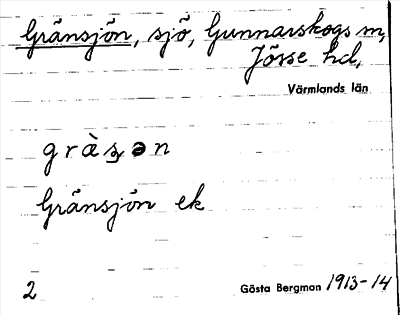 Gränsjön, sjö, Gunnarskogs sn,
Jösse hd,
Värmlands län
gràʂən
Gränsjön ek
2 Gösta Bergman 1913-14